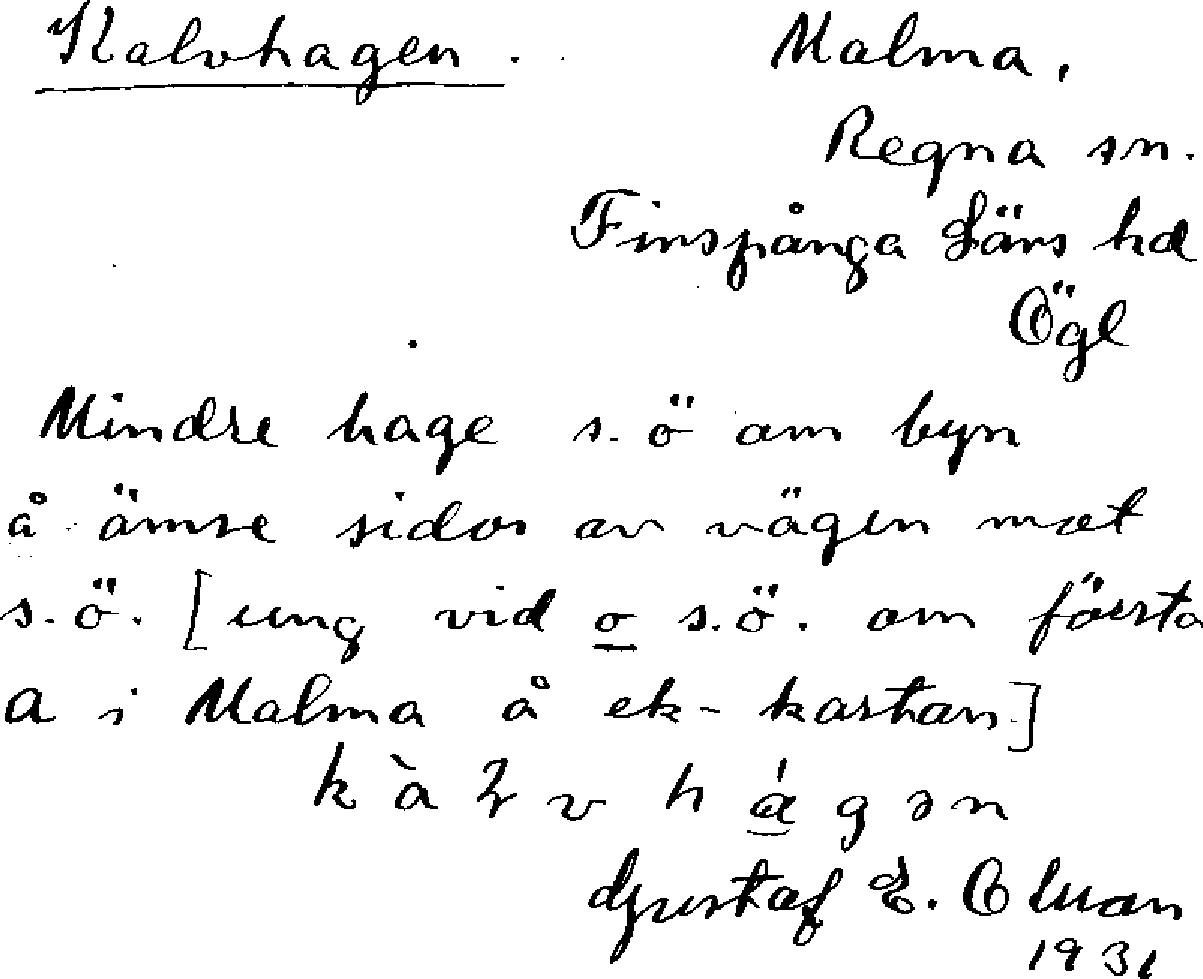 Kalvhagen. Malma,
Regna sn.
Finspånga Läns hd
Ögl
Mindre hage s.ö om byn
å ömse sidor av vägen mot
s.ö. [ung vid o s.ö. om första
a i Malma å ek-kartan.]
k à
v h g ə n
Gustaf E.
1931